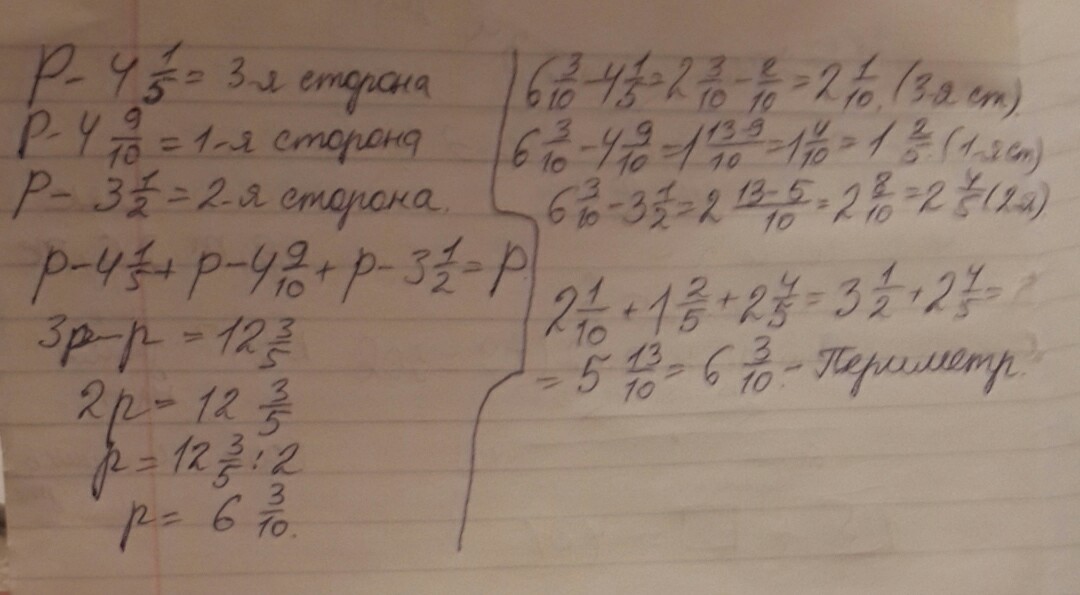 P - 4 1/5 = 3-я сторона
P - 4 9/10 = 1-я сторона
P - 3 1/2 = 2-я сторона.
p - 4 1/5 + p - 4 9/10 + p - 3 1/2 = p
3p - p = 12 3/5
2p = 12 3/5
p = 12 3/5 : 2
p = 6 3/10.
6 3/10 - 4 1/5 = 2 3/10 - 2/10 = 2 1/10. (3-я ст).
6 3/10 - 4 9/10 = 1 13-9/10 = 1 4/10 = 1 2/5. (1-я ст)
6 3/10 - 3 1/2 = 2 13-5/10 = 2 8/10 = 2 4/5 (2-я)
2 1/10 + 1 2/5 + 2 4/5 = 3 1/2 + 2 4/5 =
= 5 13/10 = 6 3/10 - Периметр.